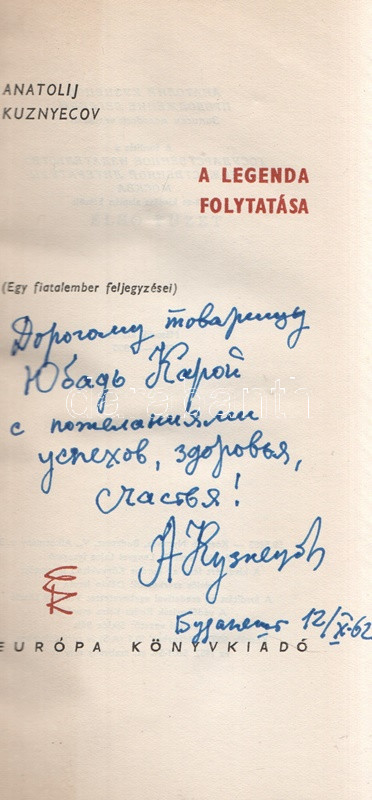 ANATOLIJ
KUZNYECOV
A LEGENDA
FOLYTATÁSA
(Egy fiatalember feljegyzései)
Дорогому товарищу
Юбадь Карой
с пожеланиями
успехов, здоровья,
счастья!
АКузнецов
Будапешт 12/X-62
EURÓPA KÖNYVKIADÓ